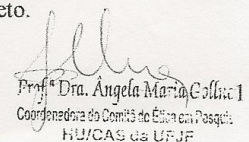 eto.
Profª Dra. Ângela Maria Gollner
Coordenadora do Comitê de Ética em Pesquisa
HU/CAS da UFJF